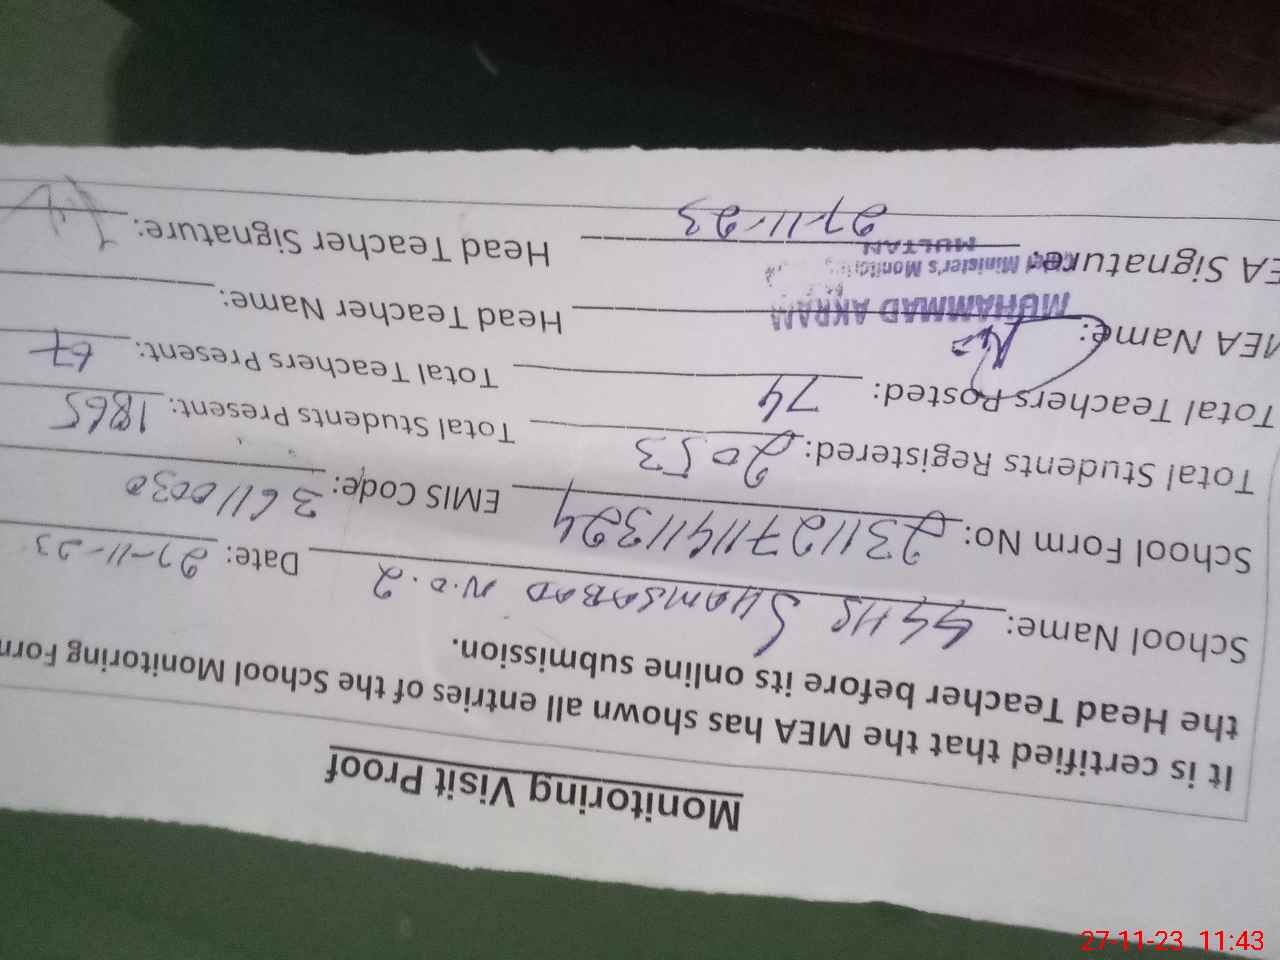 Monitoring Visit Proof
It is certified that the MEA has shown all entries of the School Monitoring Form
the Head Teacher before its online submission.
School Name: GGHS SHAMSABAD N.O.2 Date: 27-11-23
School Form No: 23112711411324 EMIS Code: 36110030
Total Students Registered: 2053 Total Students Present: 1865
Total Teachers Posted: 74 Total Teachers Present: 67
MEA Name: MUHAMMAD AKRAM Head Teacher Name:
Minister's Monitoring
MULTAN
EA Signature: 27-11-23 Head Teacher Signature:
27-11-23 11:43